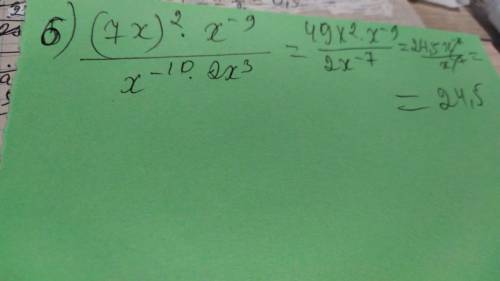 б) (7x)² · x⁻⁹ / x⁻¹⁰ · 2x³ = 49x² · x⁻⁹ / 2x⁻⁷ = 24,5x⁻⁷ / x⁻⁷ =
= 24,5